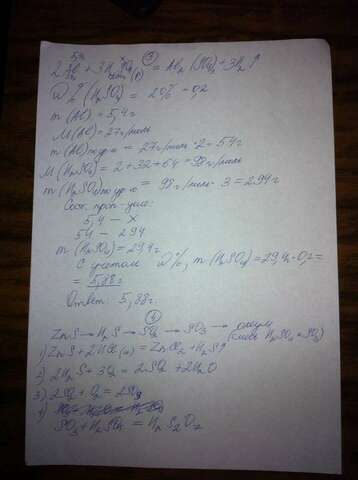 5,4г
③
2Al + 3H₂SO₄ (р) = Al₂(SO₄)₃ + 3H₂↑
W % (H₂SO₄) = 20% = 0,2
m(Al) = 5,4г
M(Al) = 27г/моль
m(Al)по ур-ю = 27г/моль · 2 = 54г
M(H₂SO₄) = 2 + 32 + 64 = 98г/моль
m(H₂SO₄)по ур-ю = 98г/моль · 3 = 294г
Сост. проп-цию:
5,4 — x
54 — 294
m(H₂SO₄) = 29,4г
С учетом W%, m(H₂SO₄) = 29,4 · 0,2 =
= 5,88г
Ответ: 5,88г.
④
ZnS → H₂S → SO₂ → SO₃ → олеум
(смесь H₂SO₄ и SO₃)
1) ZnS + 2HCl = ZnCl₂ + H₂S↑
2) 2H₂S + 3O₂ = 2SO₂ + 2H₂O
3) 2SO₂ + O₂ = 2SO₃
4)
SO₃ + H₂SO₄ = H₂S₂O₇